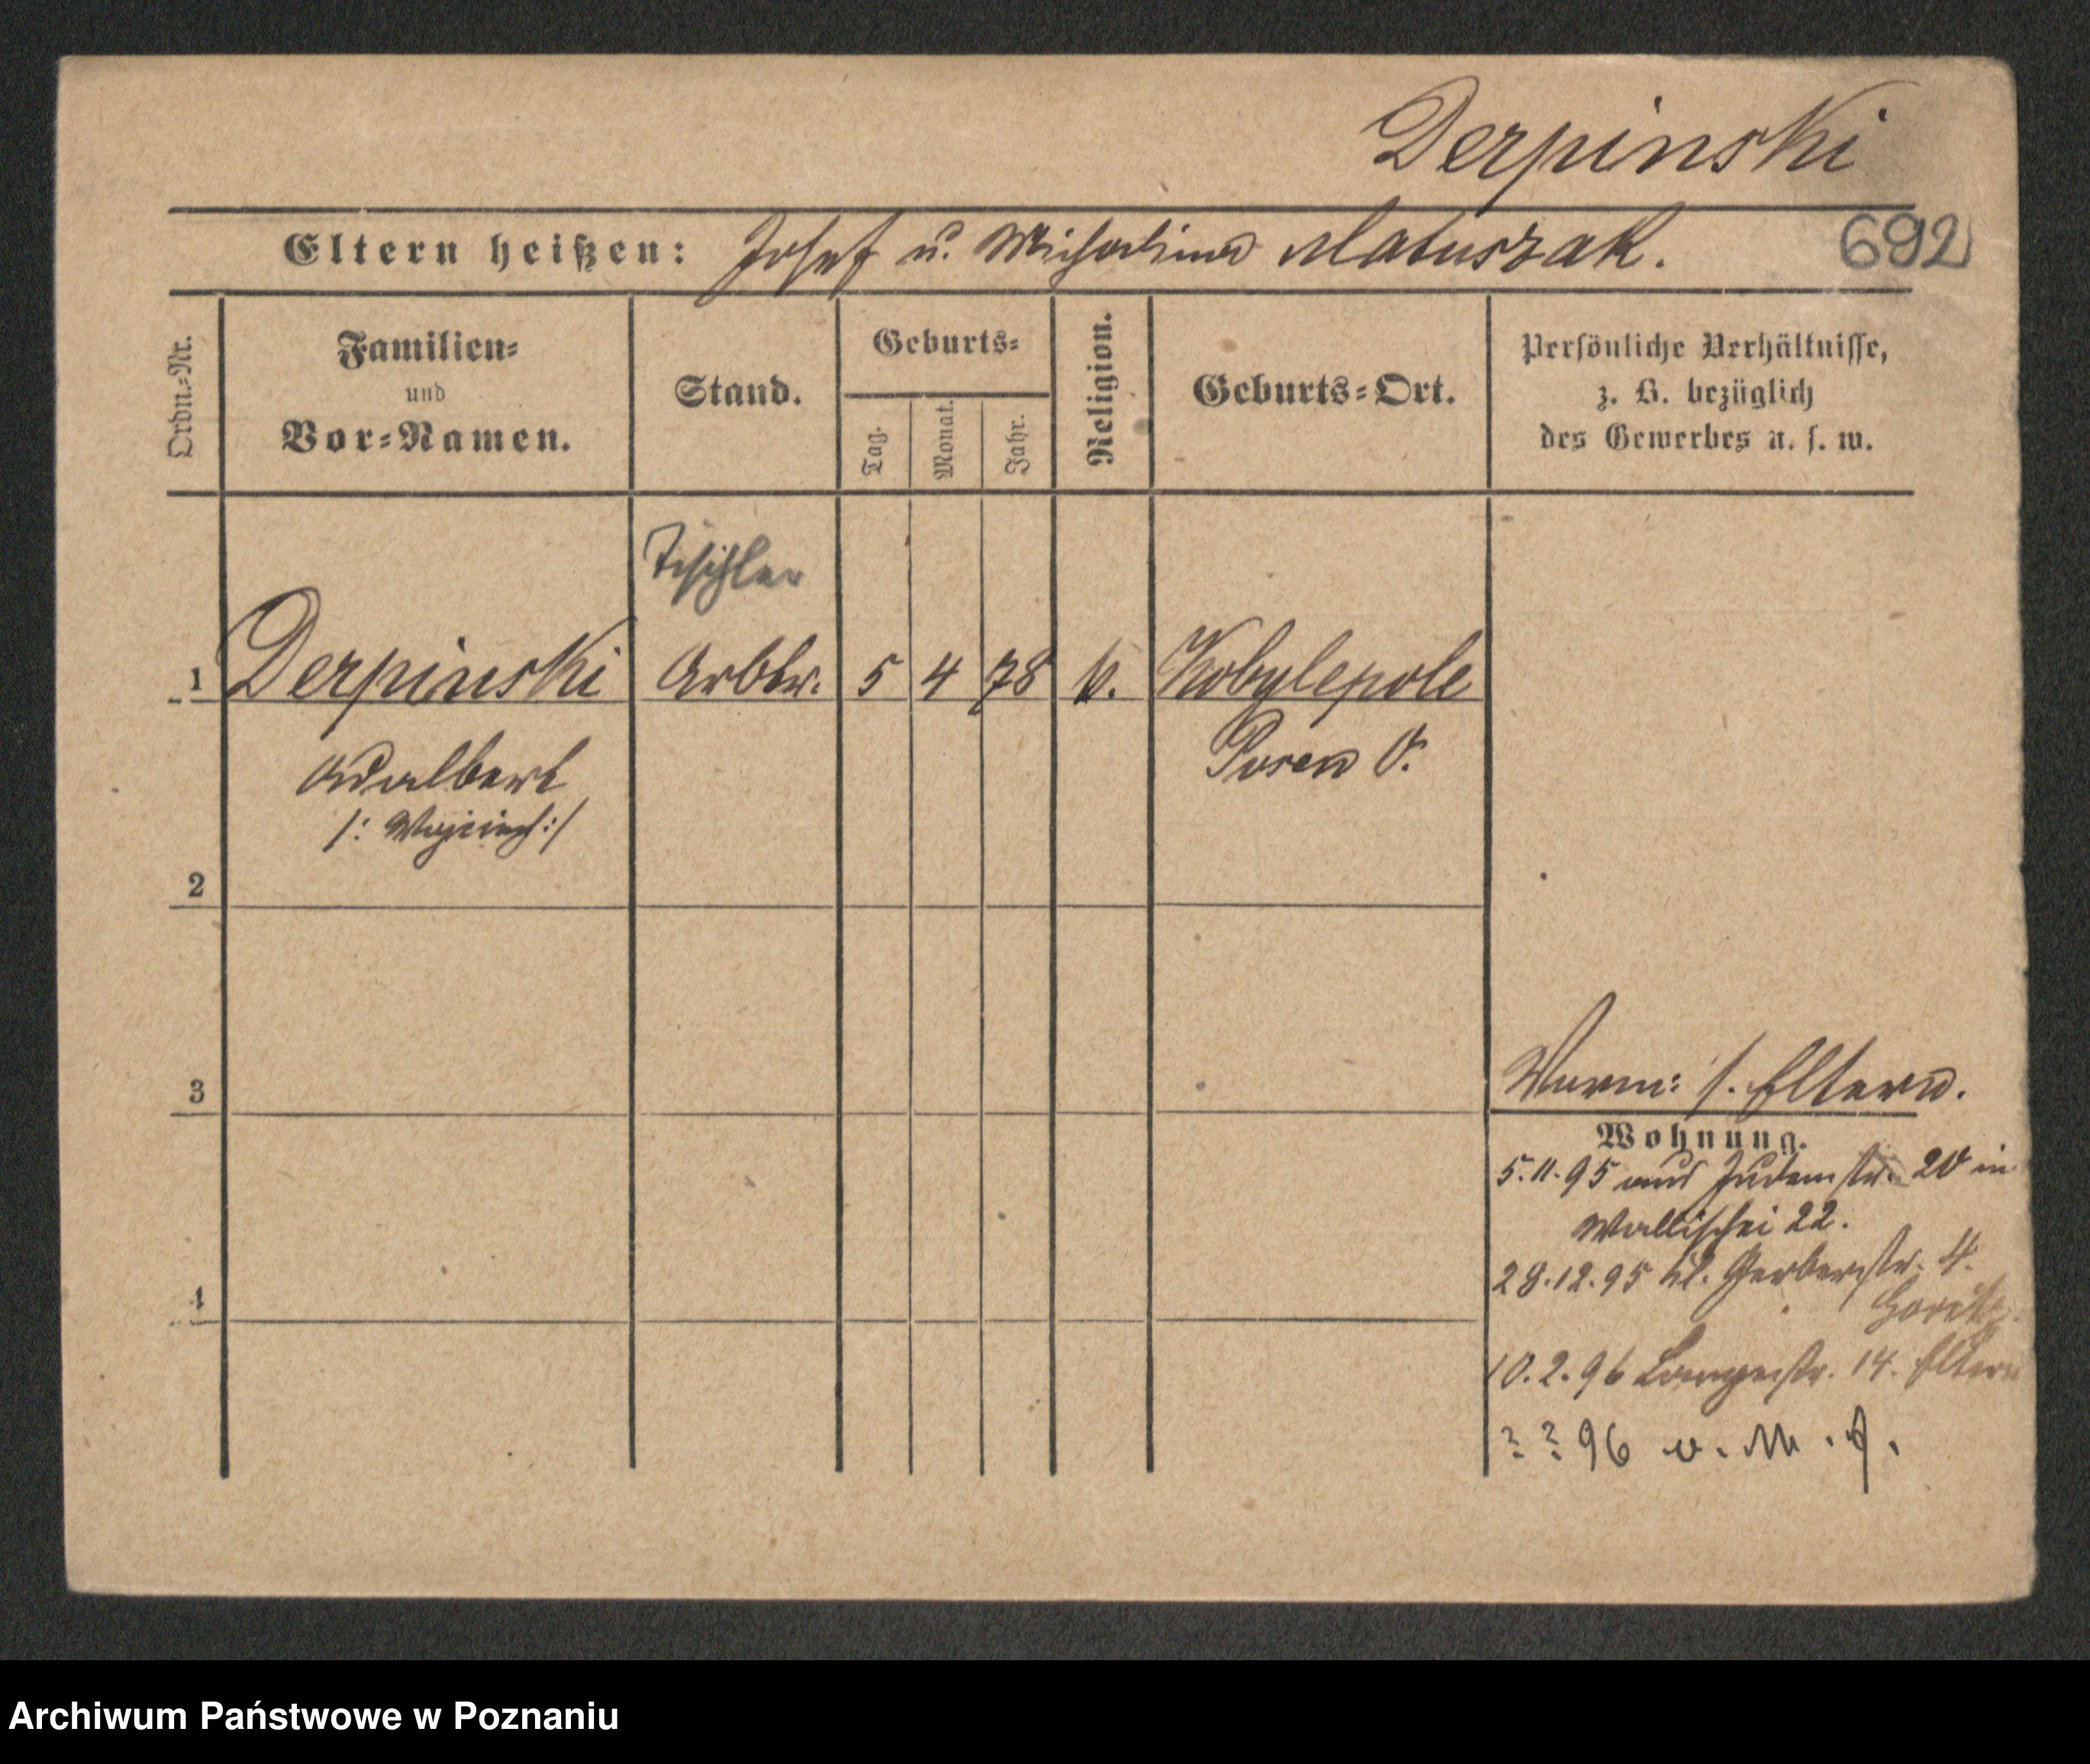 Derpinski
Eltern heißen: Josef u. Michalina Matuszak.
692
Ordn.-Nr.
Familien-
und
Vor-Namen.
Stand.
Geburts-
Tag.
Monat.
Jahr.
Religion.
Geburts-Ort.
Persönliche Verhältnisse,
z. B. bezüglich
des Gewerbes u. s. w.
Tischler
1 Derpinski Arbtr. 5 4 78 k. Kobylepole
Adalbert Posen O.
/: Wojciech :/
2
3
Vorm: s. Eltern.
Wohnung.
5.11.95 aus Judenstr. 20 in
Wallischei 22.
4
28.12.95 kl. Gerberstr. 4.
10.2.96 Langestr. 14. Eltern
? ? 96 v. M.
Archiwum Państwowe w Poznaniu